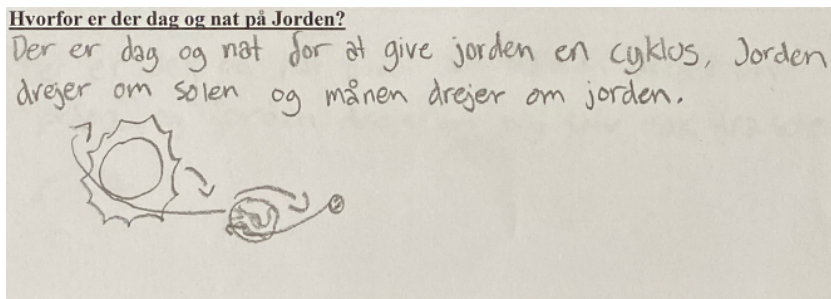 Hvorfor er der dag og nat på Jorden?
Der er dag og nat for at give jorden en cyklus, Jorden
drejer om solen og månen drejer om jorden.